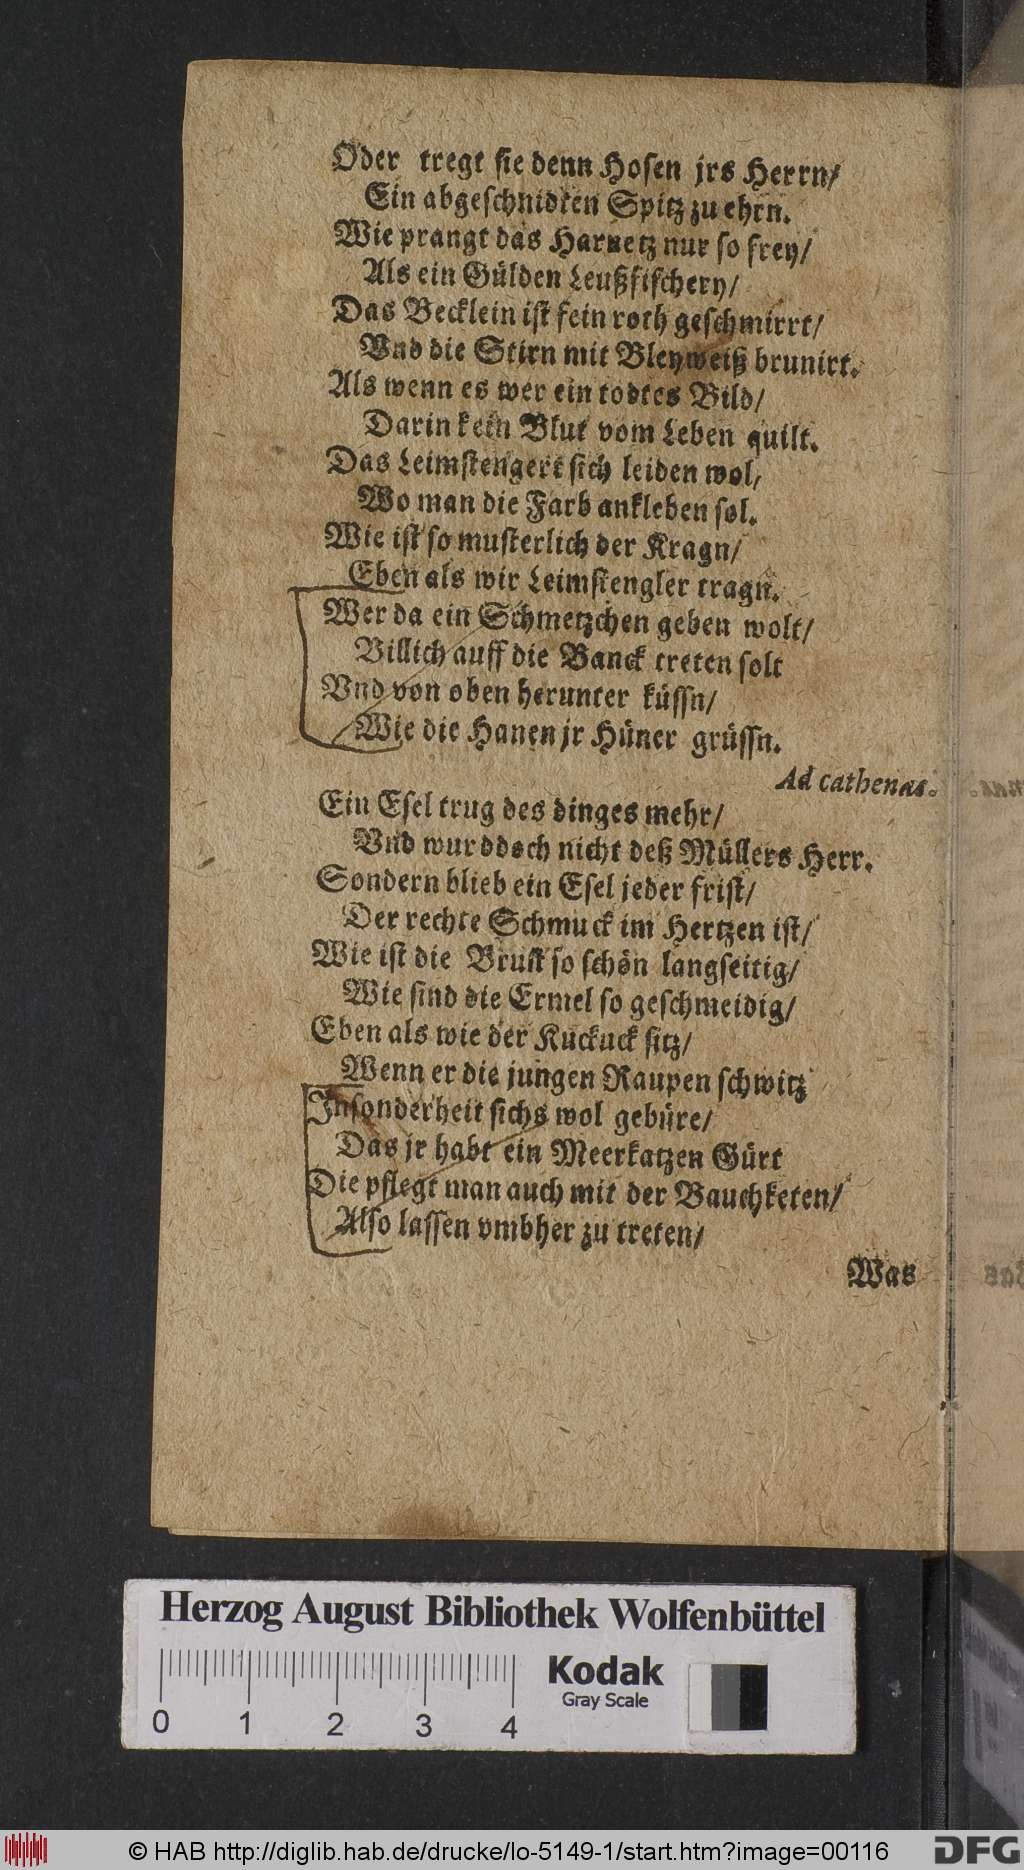 Oder tregt sie denn Hosen jrs Herrn/
Ein abgeschnidten Spitz zu ehrn.
Wie prangt das Harnetz nur so frey/
Als ein Gülden Leußfischery/
Das Becklein ist fein roth geschmirrt/
Vnd die Stirn mit Bleyweiß brunirt.
Als wenn es wer ein todtes Bild/
Darin kein Blut vom Leben quilt.
Das Leimstengert sich leiden wol/
Wo man die Farb ankleben sol.
Wie ist so musterlich der Kragn/
Eben als wir Leimstengler tragn.
Wer da ein Schmetzchen geben wolt/
Billich auff die Banck treten solt
Vnd von oben herunter küssn/
Wie die Hanen jr Hüner grüssn.
Ad cathenas.
Ein Esel trug des dinges mehr/
Vnd wurd doch nicht deß Müllers Herr.
Sondern blieb ein Esel jeder frist/
Der rechte Schmuck im Hertzen ist/
Wie ist die Brust so schön langseitig/
Wie sind die Ermel so geschmeidig/
Eben als wie der Kuckuck sitz/
Wenn er die jungen Raupen schwitz
Insonderheit sichs wol gebüre/
Das jr habt ein Meerkatzen Gürt
Die pflegt man auch mit der Bauchketen/
Also lassen vmbher zu treten/
Was
Herzog August Bibliothek Wolfenbüttel
Kodak
Gray Scale
0 1 2 3 4
© HAB http://diglib.hab.de/drucke/lo-5149-1/start.htm?image=00116
DFG